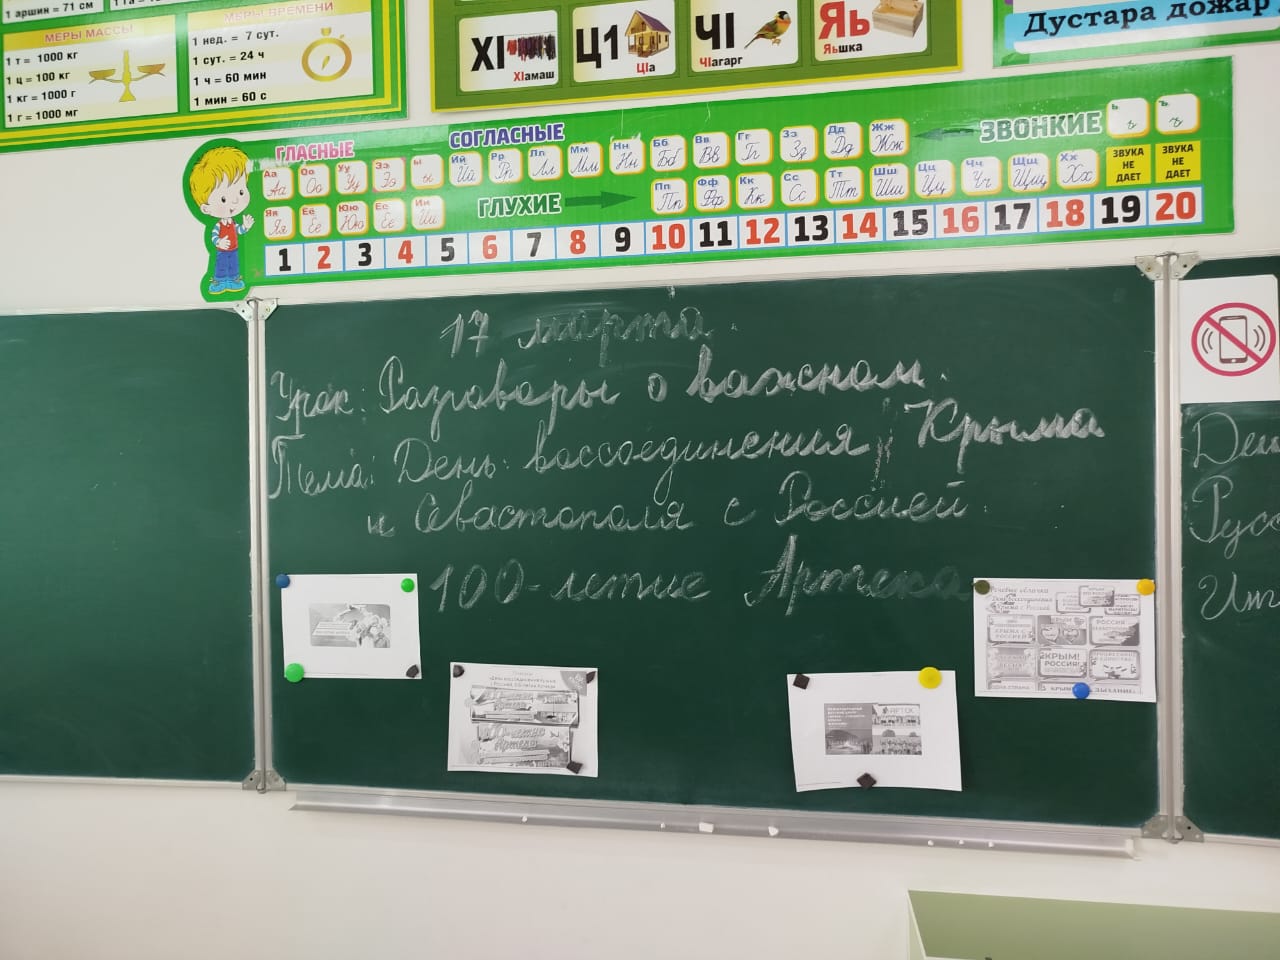 1 аршин = 71 см
МЕРЫ МАССЫ
1 т = 1000 кг
1 ц = 100 кг
1 кг = 1000 г
1 г = 1000 мг
МЕРЫ ВРЕМЕНИ
1 нед. = 7 сут.
1 сут. = 24 ч
1 ч = 60 мин
1 мин = 60 с
ХӀ
ХӀамаш
ЦӀ
ЦӀа
ЧӀ
ЧӀагарг
Яь
Яьшка
Дустара дожар
ГЛАСНЫЕ
СОГЛАСНЫЕ
ЗВОНКИЕ
Аа Оо Уу Ээ ы Йй Рр Лл Мм Нн Бб Вв Гг Зз Дд Жж ь ъ
ГЛУХИЕ
Яя Ёё Юю Ее Ии Пп Фф Кк Сс Тт Шш Цц Чч Щщ Хх
ЗВУКА НЕ ДАЕТ
ЗВУКА НЕ ДАЕТ
1 2 3 4 5 6 7 8 9 10 11 12 13 14 15 16 17 18 19 20
17 марта.
Урок: Разговоры о важном.
Тема: День воссоединения Крыма
и Севастополя с Россией.
100-летие Артека
100-летие Артека
АРТЕК
Речевые облачка
День воссоединения
Крыма с Россией
РОССИЯ
КРЫМ!
РОССИЯ!